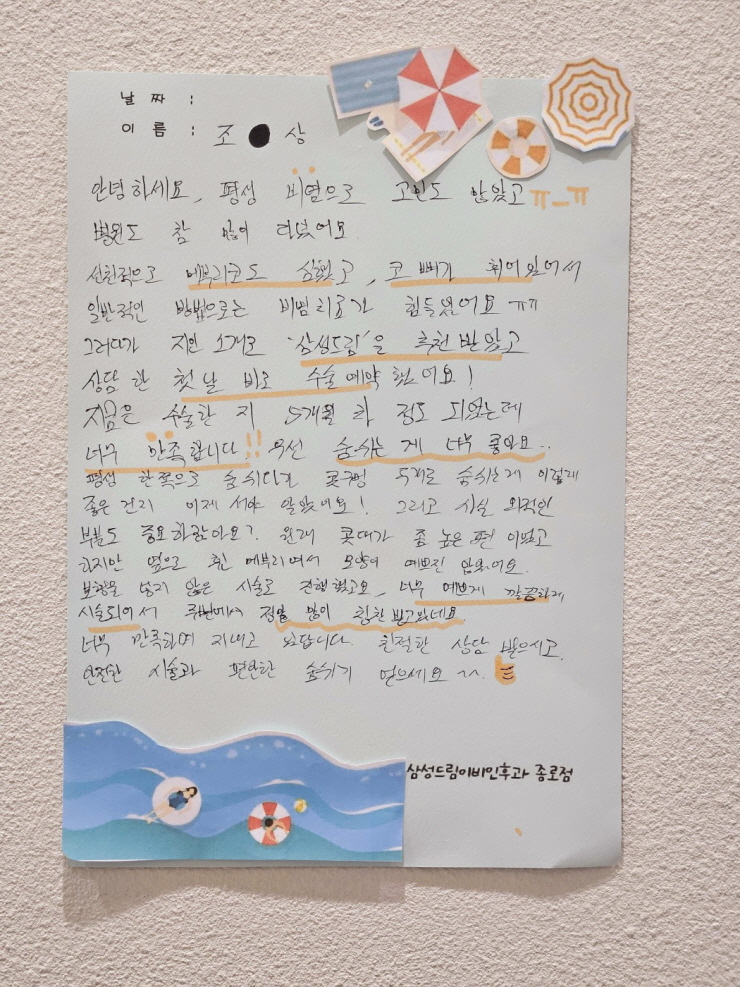 날 짜 :
이 름 : 조 ● 상
안녕하세요, 평생 비염으로 고민도 많았고 ㅠ_ㅠ
병원도 참 많이 다녔어요
선천적으로 매부리코도 심했고, 코 뼈가 휘어있어서
일반적인 방법으로는 비염치료가 힘들었어요 ㅠㅠ
그러다가 지인 소개로 '삼성드림'을 추천 받았고
상담 한 첫 날 바로 수술 예약 했어요!
지금은 수술한 지 5개월 차 정도 되었는데
너무 만족합니다!! 우선 숨쉬는 게 너무 좋아요..
평생 한쪽으로 숨쉬다가 콧구멍 두개로 숨쉬는게 이렇게
좋은 건지 이제 서야 알았어요! 그리고 사실 외적인
부분도 중요하잖아요? 원래 콧대가 좀 높은 편 이었고
하지만 옆으로 휜 매부리여서 모양이 예쁘진 않았어요.
보형물 넣지 않은 시술로 진행했고요, 너무 예쁘게 깔끔하게
시술되어서 주변에서 정말 많이 칭찬 받고있네요.
너무 만족하며 지내고 있답니다. 친절한 상담 받으시고,
안전한 시술과 편안한 숨쉬기 얻으세요 ^^.
삼성드림이비인후과 종로점